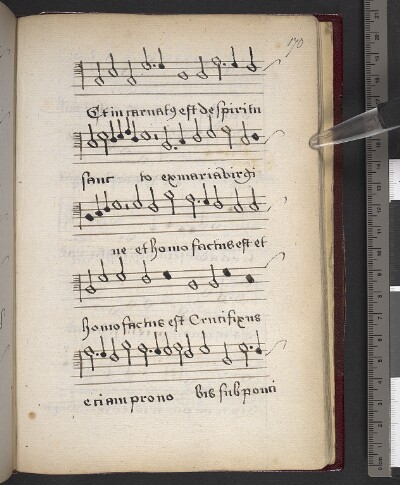 170
Et incarnatꝯ est de spiritu
sanc to ex maria virgi
ne et homo factus est et
homo factus est Crucifixus
etiam prono bis sub ponti